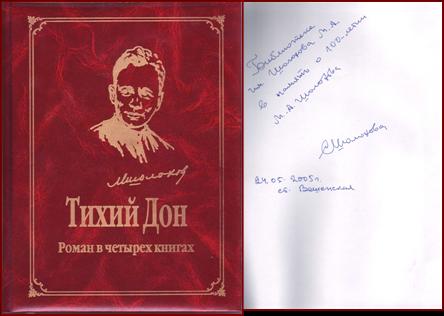 М Шолохов
Тихий Дон
Роман в четырех книгах
Библиотеке
им Шолохова М.А.
в память о 100-летии
М.А Шолохова
СШолохова
24.05.2005г.
ст. Вешенская